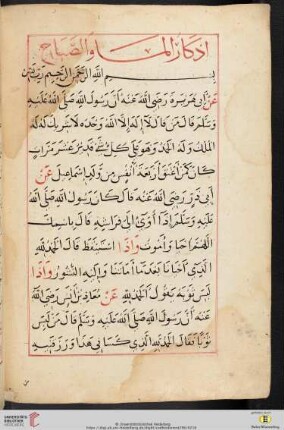 اذكار المساء والصباح
بسم الله الرحمن الرحيم رب
عن أبي هريرة رضي الله عنه أن رسول الله صلى الله عليه
وسلم قال من قال لا إله إلا الله وحده لا شريك له له
الملك وله الحمد وهو على كل شيء قدير عشر مرات
كان كمن أعتق أربعة أنفس من ولد إسماعيل عن
أبي ذر رضي الله عنه قال كان رسول الله صلى الله
عليه وسلم إذا أوى إلى فراشه قال باسمك
اللهم أحيا وأموت وإذا استيقظ قال الحمد لله
الذي أحيانا بعد ما أماتنا وإليه النشور وإذا
لبس ثوبه يقول الحمد لله عن معاذ بن أنس رضي الله
عنه أن رسول الله صلى الله عليه وسلم قال من لبس
ثوبا فقال الحمد لله الذي كساني هذا ورزقنيه
UNIVERSITÄTS-
BIBLIOTHEK
HEIDELBERG
© Universitätsbibliothek Heidelberg